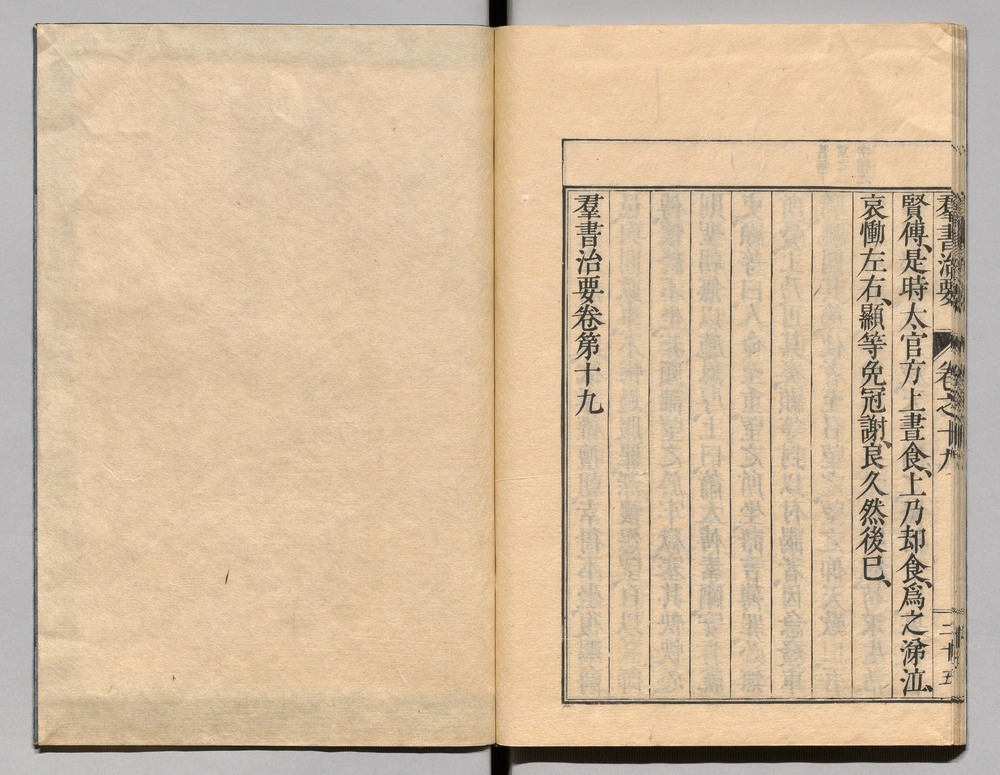 羣書治要 卷之十九 二十五
賢傅、是時太官方上晝食、上乃却食、爲之涕泣、
哀慟左右、顯等免冠謝、良久然後已、
羣書治要卷第十九